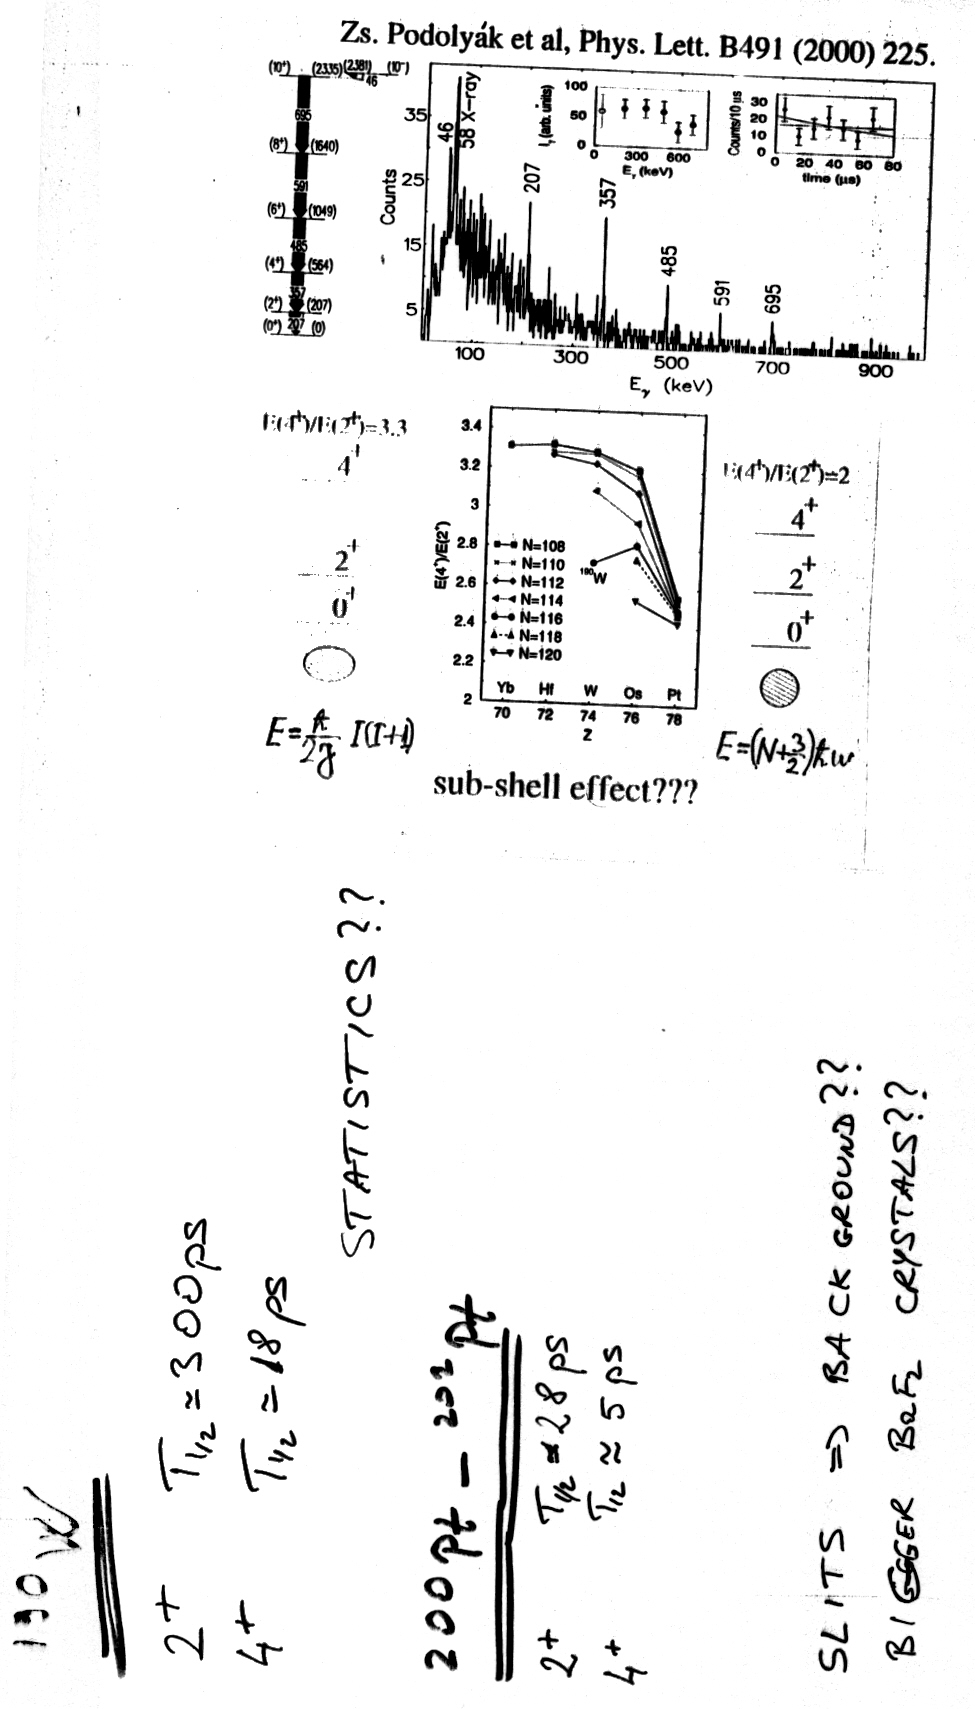 Zs. Podolyák et al, Phys. Lett. B491 (2000) 225.
(10⁺) (2335) (2381) (10⁻)
46
695
(8⁺) (1640)
591
(6⁺) (1049)
485
(4⁺) (564)
357
(2⁺) (207)
(0⁺) 207 (0)
Counts
35
25
15
5
46
58 X-ray
207
357
485
591
695
100 300 500 700 900
Eγ (keV)
Iγ(arb. units)
100
50
0
0 300 600
Eγ (keV)
Counts/10 μs
30
20
10
0
0 20 40 60 80
time (μs)
E(4⁺)/E(2⁺)=3.3
4⁺
2⁺
0⁺
E=ħ/2𝒥 I(I+1)
E(4⁺)/E(2⁺)
3.4
3.2
3
2.8
2.6
2.4
2.2
2
N=108
N=110
N=112
N=114
N=116
N=118
N=120
¹⁹⁰W
Yb Hf W Os Pt
70 72 74 76 78
Z
E(4⁺)/E(2⁺)=2
4⁺
2⁺
0⁺
E=(N+3/2)ħω
sub-shell effect???
190W
2+ T1/2 ≃ 300ps
4+ T1/2 ≃ 18 ps
STATISTICS??
200Pt - 202Pt
2+ T1/2 ≃ 28 ps
4+ T1/2 ≃ 5 ps
SLITS => BACKGROUND??
BIGGER BaF2 CRYSTALS??